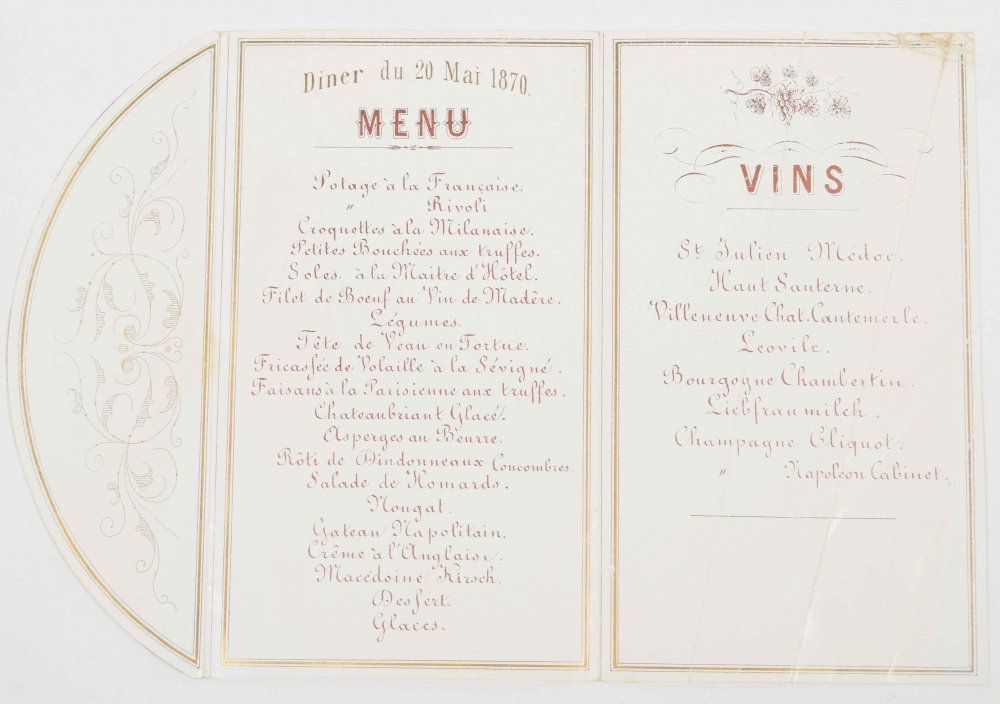 Diner du 20 Mai 1870.
MENU
Potage à la Française.
" Rivoli
Croquettes à la Milanaise.
Petites Bouchées aux truffes.
Soles à la Maitre d'Hôtel.
Filet de Boeuf au Vin de Madère.
Légumes.
Tête de Veau en Tortue.
Fricassée de Volaille à la Sévigné.
Faisans à la Parisienne aux truffes.
Chateaubriant Glacé.
Asperges au Beurre.
Rôti de Dindonneaux Concombres.
Salade de Homards.
Nougat.
Gateau Napolitain.
Crême à l'Anglaise.
Macédoine Kirsch.
Dessert.
Glaces.
VINS
St Julien Médoc.
Haut Sauterne.
Villeneuve Chat. Cantemerle.
Leovile.
Bourgogne Chambertin.
Liebfraumilch.
Champagne Cliquot.
" Napoleon Cabinet.